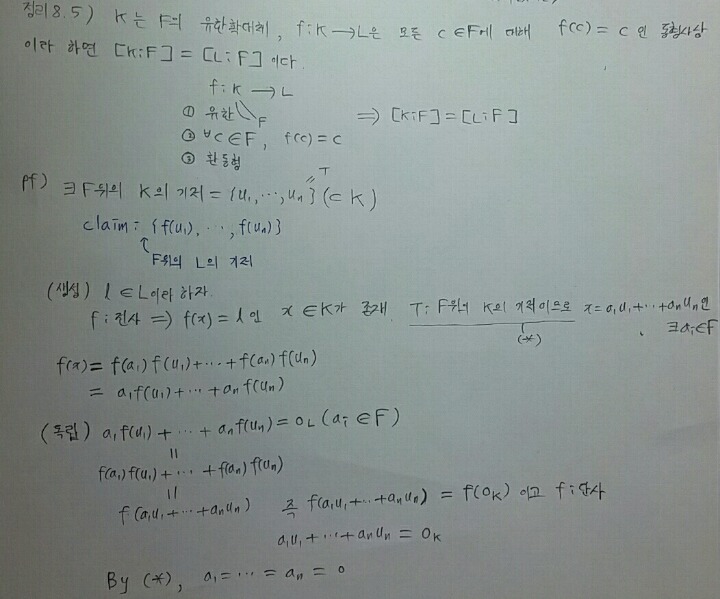 정리 8.5) K는 F의 유한확대체, f:K→L은 모든 c∈F에 대해 f(c)=c인 동형사상
이라 하면 [K:F]=[L:F]이다.
f:K→L
① 유한 F ⇒ [K:F]=[L:F]
② ∀c∈F, f(c)=c
③ 환동형
pf) ∃F위의 K의 기저={u₁,⋯,uₙ}(⊂K)
= T
claim: {f(u₁),⋯,f(uₙ)}
↑
F위의 L의 기저
(생성) l∈L이라 하자.
f:전사 ⇒ f(x)=l인 x∈K가 존재. T:F위의 K의 기저이므로 x=a₁u₁+⋯+aₙuₙ인
(*) ∃aᵢ∈F
f(x)=f(a₁)f(u₁)+⋯+f(aₙ)f(uₙ)
=a₁f(u₁)+⋯+aₙf(uₙ)
(독립) a₁f(u₁)+⋯+aₙf(uₙ)=0_L(aᵢ∈F)
=
f(a₁)f(u₁)+⋯+f(aₙ)f(uₙ)
=
f(a₁u₁+⋯+aₙuₙ) 즉 f(a₁u₁+⋯+aₙuₙ)=f(0_K)이고 f:단사
a₁u₁+⋯+aₙuₙ=0_K
By (*), a₁=⋯=aₙ=0